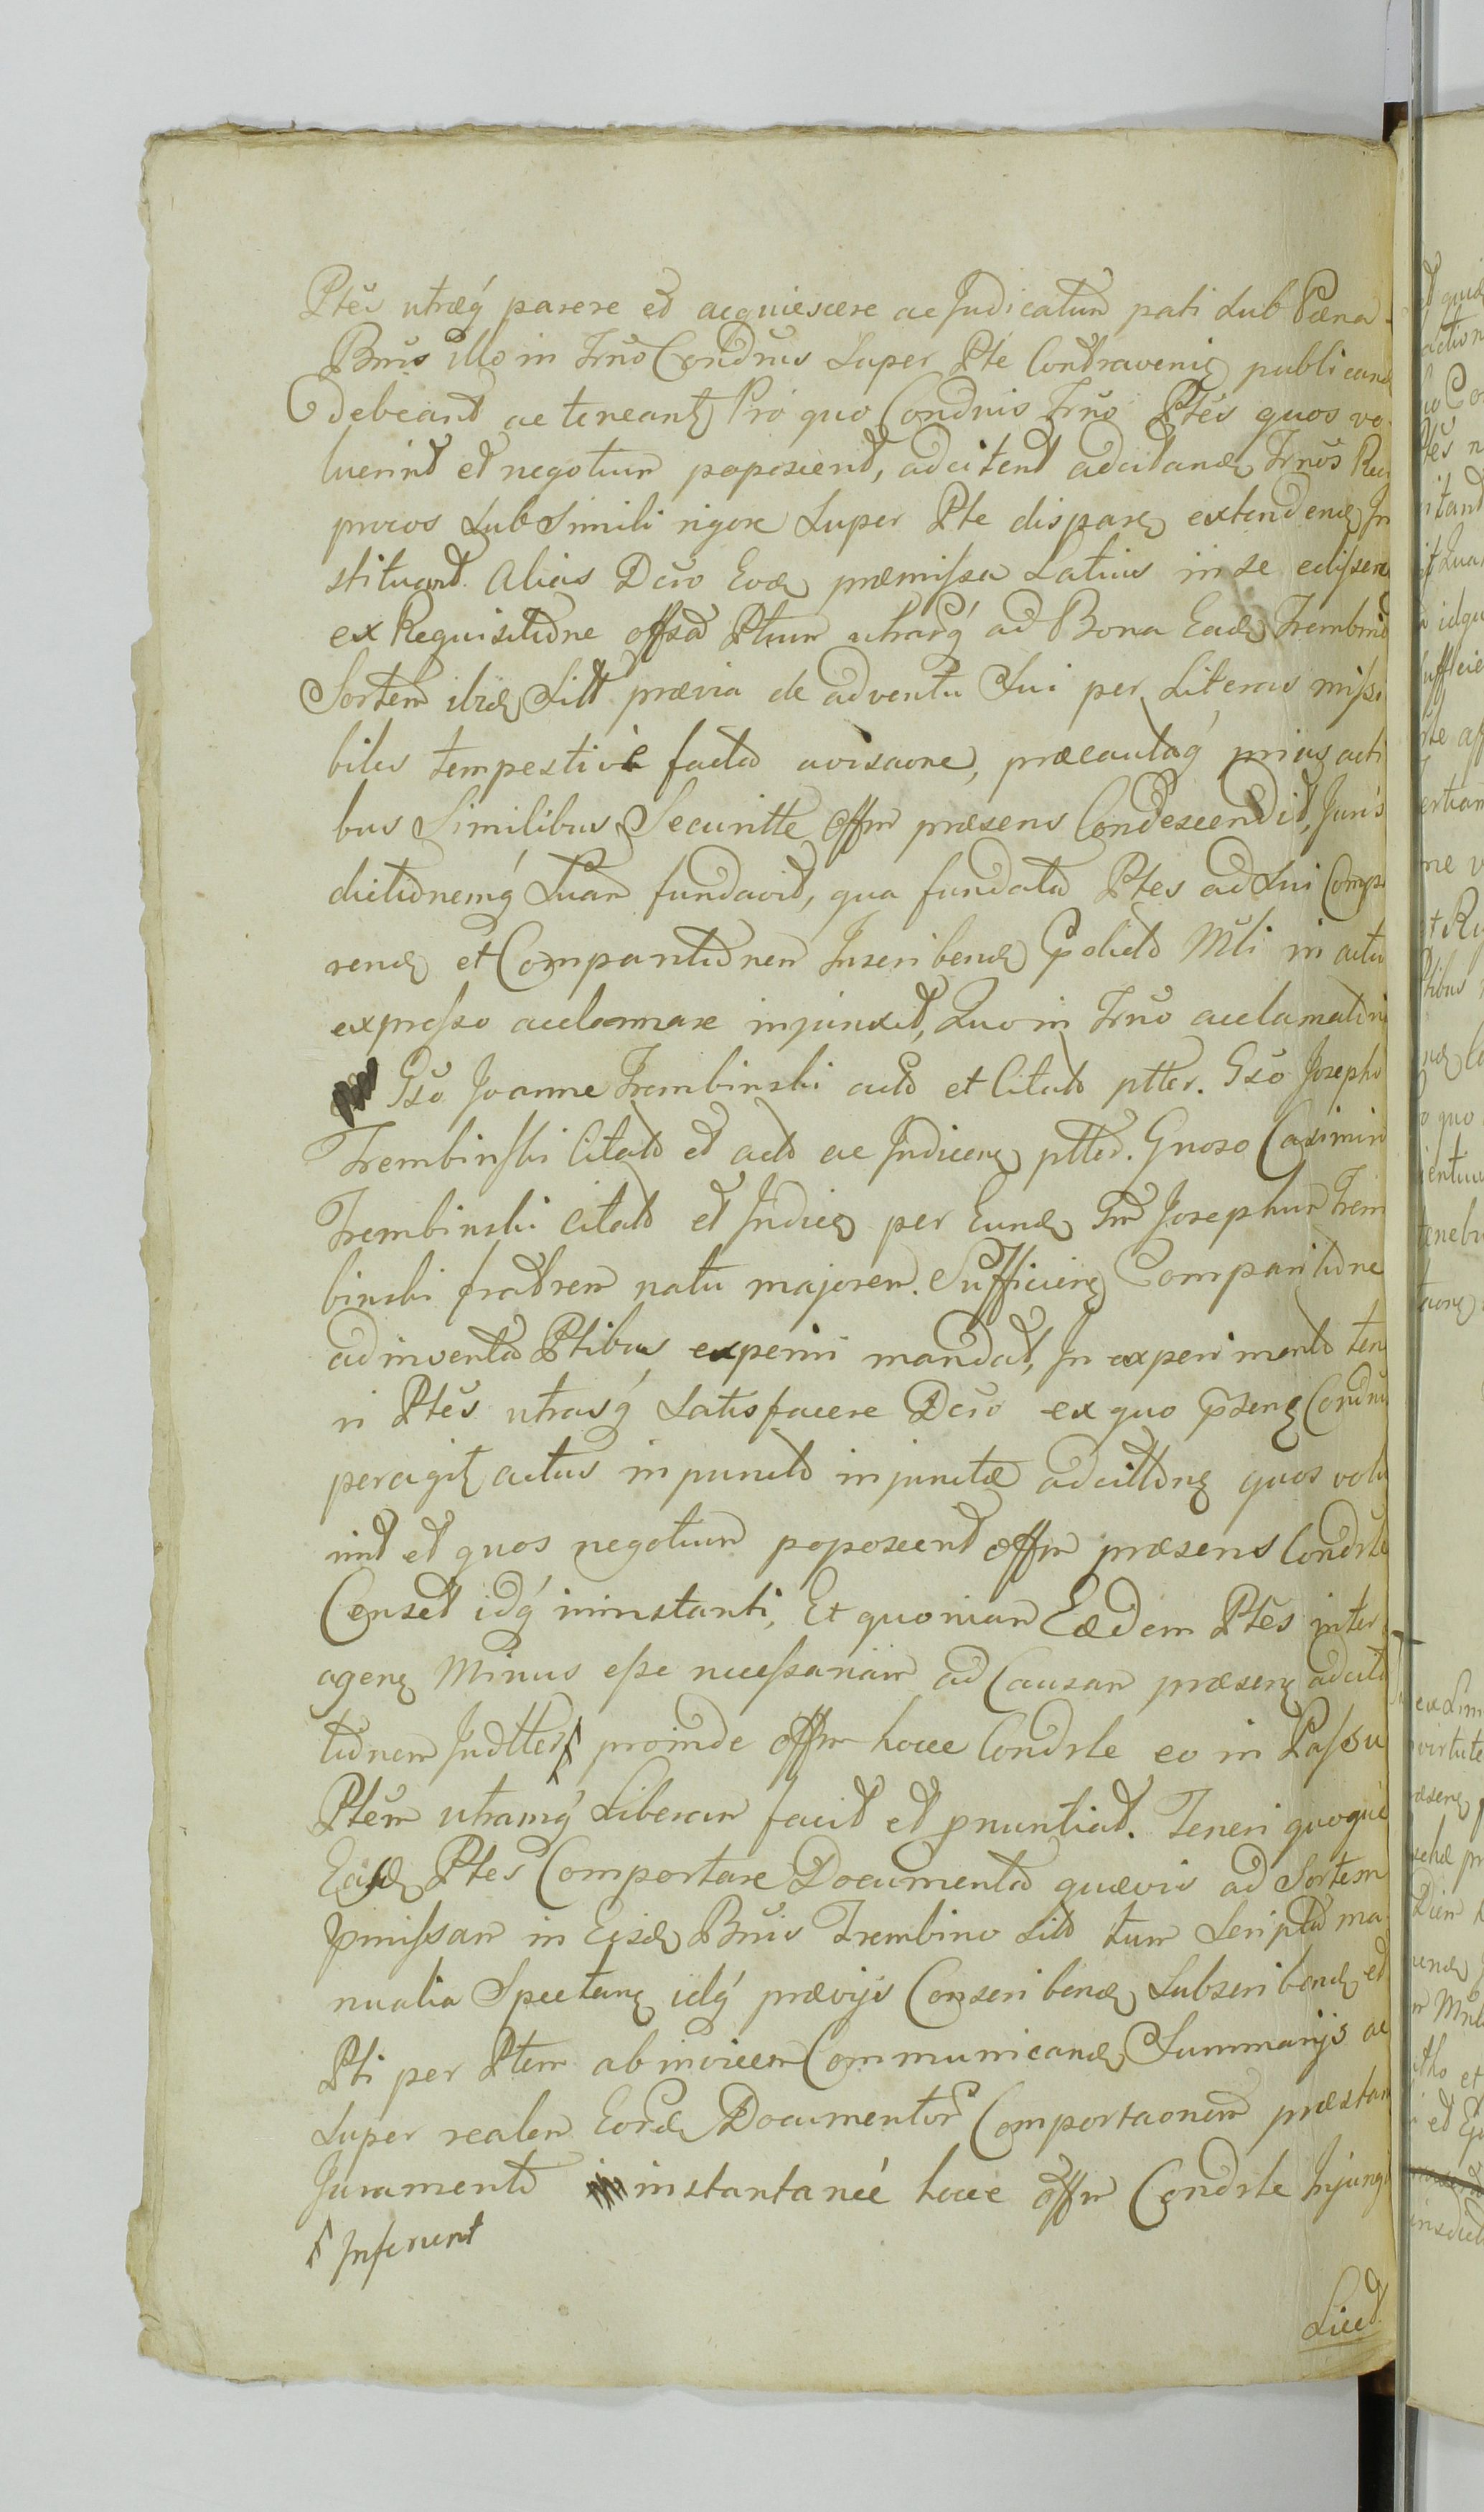 Ptes utræq́ parere et acquiescere ac Judicatum pati sub Pæna
Bnis illo in Trno Condnis super Pte Contraveniē publicand
debeant ac teneant Pro quo Condnis Trno Ptes quos vo
luerint et negotium poposcerit, adcitent adcitand Trnos Reci
procos sub simili rigore super Pte dispare extendend In
stituant. Alias Dcro Eod præmissa Latius in se edissere
ex Requisitione offsa Ptium utrarq́ ad Bona Ead Trembino
Sortem ibid Sitt prævia de adventu sui per Literas missi
biles tempestive facta avisaone, præcautaq́ prius acti
bus Similibus Securitte Offm præsens Condescendit, Juris
dictionemq́ suam fundavit, qua fundata Ptes ad sui Compa
rend et Comparitionem Inscribend Pvidto Mli in actu
expresso acclamare injunxit, Quo in Trno acclamationi
Gso Joanne Trembinski acto et Citato ptter. Gso Josepho
Trembinski Citato et acto ac Indicene ptter. Gnoso Casimiro
Trembinski Citato et Indice per Eund Gm Josephum Trem
binski fratrem natu majorem. Sufficien Comparitione
adinventa Ptibus experiri mandat, In experimento ten
ri Ptes utrasq́ satisfacere Dcro ex quo psens Condnis
peragit actus in puncto injunctæ adcittone quos volu
int et quos negotium poposcerit offm præsens Condrle
Censet idq́ in instanti, Et quoniam Eædem Ptes inter
agene Minus esse necessariam ad Causam præsen adcita
tionem Judtter proinde offm hocce Condrle eo in Passu
Ptem utramq́ Liberam facit et pnuntiat. Teneri quoque
Easd Ptes Comportare Documenta quævis ad Sortem
pmissam in Eisd Bnis Trembino sit tum scripta ma
nualia Spectan idq́ prævijs Conscribend subscribend et
Pti per Ptem ab invicem Communicand Summarijs ac
super realem Eord Documentor Comportaonem præstan
Juramento instantanee hocce offm Condrle Injungi
Inferunt
Licet